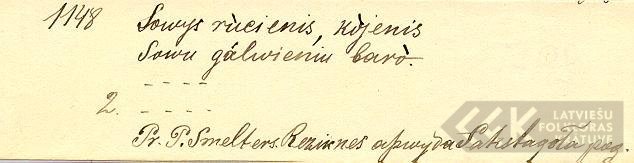 1148 Sowys rùcienis, kòjenis
Sowu gálwieniu barò.
- - - -
2. - - - -
Pr. P. Smelters. Rezeknes apwyda Sakstagola pog.
LATVIEŠU
FOLKLORAS
KRĀTUVE